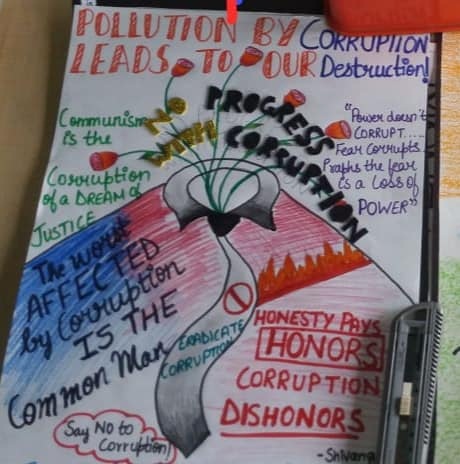 POLLUTION BY CORRUPTION
LEADS TO OUR Destruction!
NO PROGRESS
WITH CORRUPTION
Communism
is the
Corruption
of a DREAM of
JUSTICE
"Power doesn't
CORRUPT.....
Fear Corrupts..
Praphs the fear
is a Loss of
POWER"
The worst
AFFECTED
by Corruption
IS THE
Common Man
ERADICATE
CORRUPTION
HONESTY PAYS
HONORS
CORRUPTION
DISHONORS
Say NO to
Corruption!